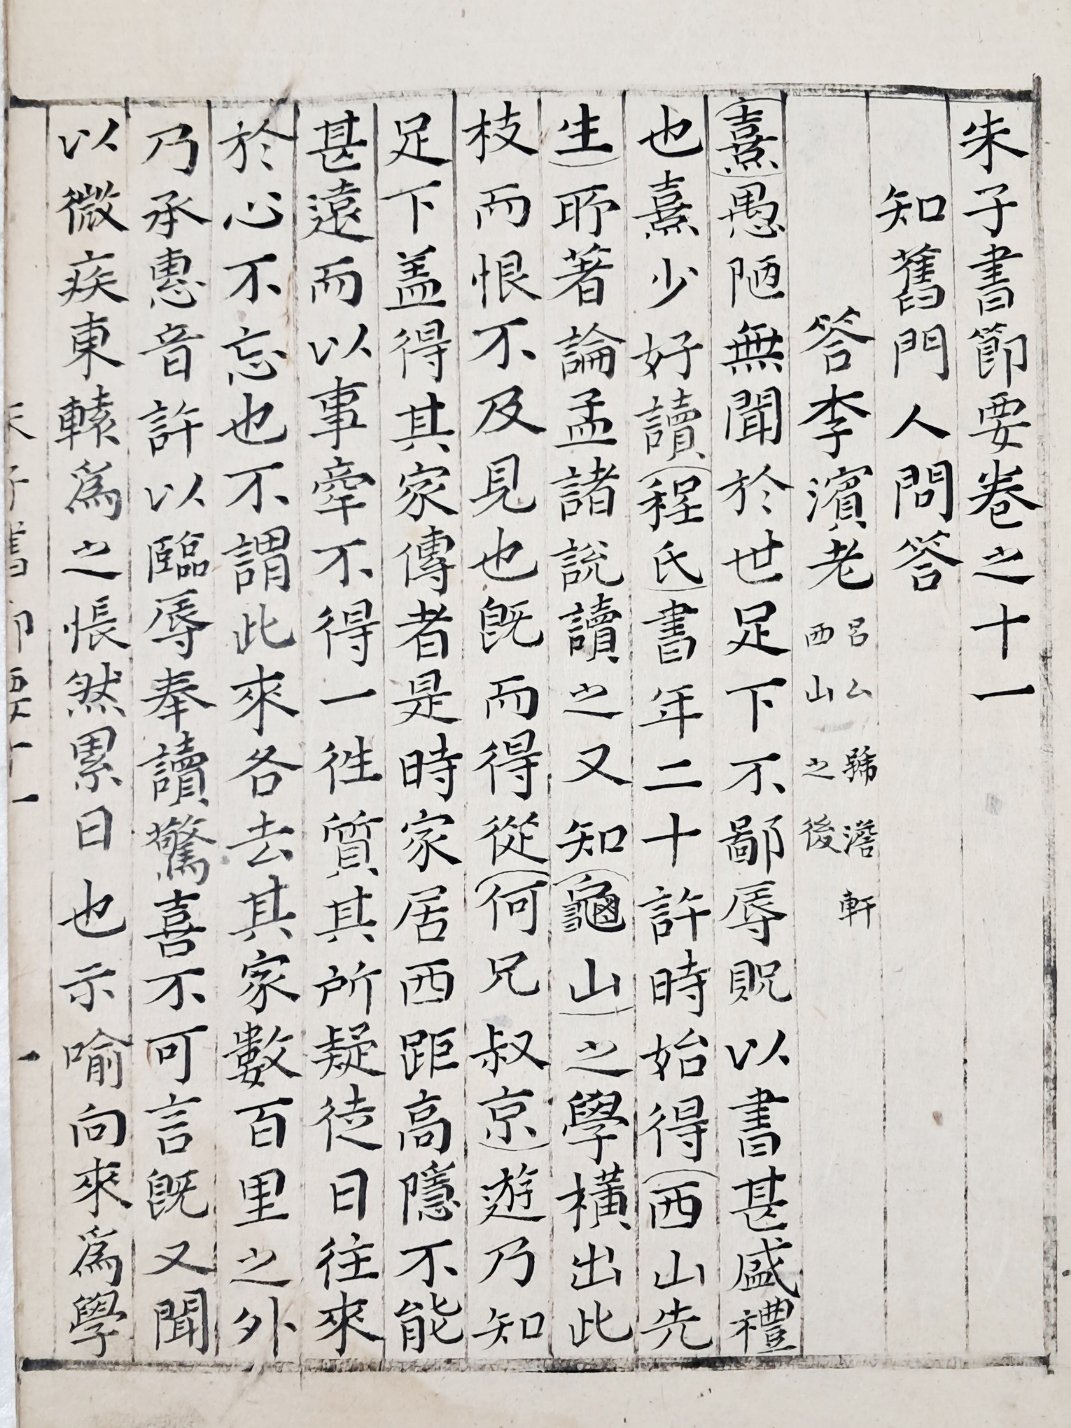 朱子書節要卷之十一
知舊門人問答
答李濱老
呂公號澹軒
西山之後
熹愚陋無聞於世足下不鄙辱貺以書甚盛禮
也熹少好讀程氏書年二十許時始得西山先
生所著論孟諸說讀之又知龜山之學橫出此
枝而恨不及見也旣而得從何兄叔京遊乃知
足下盖得其家傳者是時家居西距高隱不能
甚遠而以事牽不得一徃質其所疑徒日往來
於心不忘也不謂此來各去其家數百里之外
乃承惠音許以臨辱奉讀驚喜不可言旣又聞
以微疾東轅爲之悵然累日也示喻向來爲學
朱子書節要十一
一